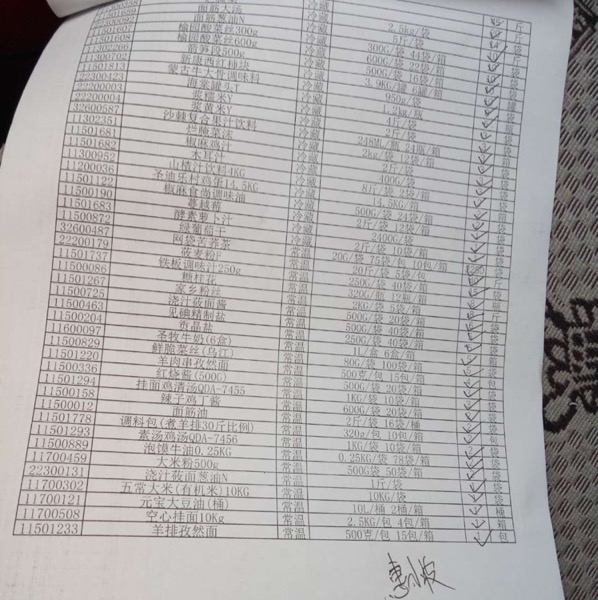 面筋大汤 冷藏 斤
面筋葱油N 冷藏 2.5kg/袋 袋
榆圆酸菜丝300g 冷藏 1斤/袋 袋
11501608 榆圆酸菜丝600g 冷藏 300G/袋 44袋/箱 袋
11302266 箭笋段500g 冷藏 600G/袋 22袋/箱 袋
11300702 新康西红柿块 冷藏 500G/袋 16袋/箱 罐
11501813 蒙古牛大骨调味料 冷藏 3.9KG/罐 6罐/箱 袋
22300423 海棠罐头T 冷藏 950g/袋
22200003 黄米Y 冷藏 袋
22200004 浆黄米Y 冷藏 4斤/袋 袋
32600587 沙棘复合果汁饮料 冷藏 248ML/瓶 24瓶/箱
11302351 烂腌菜法 冷藏 2斤/袋 袋
11501681 椒麻鸡汁 冷藏 2kg/袋 12袋/箱 袋
11501682 木耳汁 冷藏 2斤/袋 袋
11300952 山楂片饮料4KG 冷藏 8斤/袋 2袋/箱 袋
11200036 圣迪乐村鸡蛋14.5KG 冷藏 14.5KG/箱
11501122 椒麻食尚调味油 冷藏 500G/袋 24袋/箱 袋
11500190 蔓越莓 冷藏 2斤/袋 12袋/箱 袋
11501683 酵素萝卜汁 冷藏 2400G/袋 袋
11500872 绿葡萄干 冷藏 2斤/袋 10袋/箱 袋
32600487 网袋苦荞茶 常温 20G/袋 75袋/包 10包/箱
22200179 莜麦粉F 常温 20斤/袋 5袋/包 斤
11501737 铁板调味汁250g 常温 250G/袋 40袋/箱 袋
11500086 糖桂花 常温 320G/瓶 12瓶/箱 瓶
11501267 家乡粉丝 常温 2KG/袋 5袋/箱 袋
11500725 浇汁莜面酱 常温 500G/袋 20袋/箱 袋
11500463 见碘精制盐 常温 500G/袋 40袋/箱 袋
11500204 贡晶盐 常温 250G/袋 40袋/箱 袋
11600097 圣牧牛奶(6盒) 常温 1L/盒 6盒/箱 盒
11500829 鲜脆菜丝(乌江) 常温 80G/袋 100袋/箱 袋
11501220 羊肉串孜然面 常温 500克/袋 15包/箱 包
11500336 红烧酱(500G) 常温 500G/袋 20袋/箱 袋
11501294 挂面鸡清汤QDA-7455 常温 1KG/袋 10袋/箱 袋
11500158 辣子鸡丁酱 常温 600G/袋 20袋/箱 袋
11500012 面筋油 常温 2斤/袋 16袋/桶 袋
11501778 调料包(煮羊排30斤比例) 常温 320g/包 10包/箱 包
11501293 素汤鸡汤QDA-7456 常温 1KG/袋 10袋/箱 袋
11500889 泡馍牛油0.25KG 常温 0.25KG/袋 78袋/箱 袋
11700459 大米粉500g 常温 500G/袋 50袋/箱 袋
22300131 浇汁莜面葱油N 常温 1斤/袋 斤
11700302 五常大米(有机米)10KG 常温 10KG/袋 袋
11700121 元宝大豆油(桶) 常温 10L/桶 2桶/箱 桶
11700508 空心挂面10Kg 常温 2.5KG/包 4包/箱 包
11501233 羊排孜然面 常温 500克/包 15包/箱 包